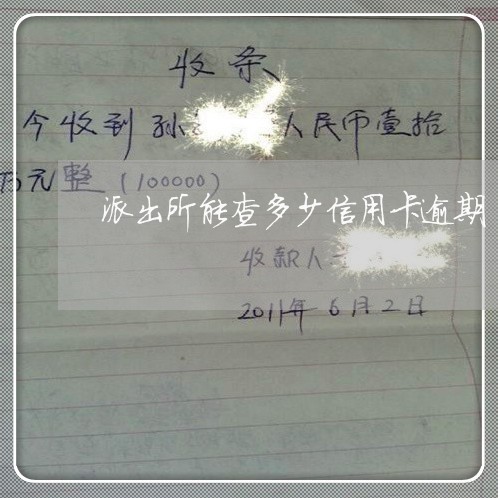 收条
今收到孙 人民币壹拾
万元整（100000）
派出所能查多少信用卡逾期
收款人
2011年6月2日